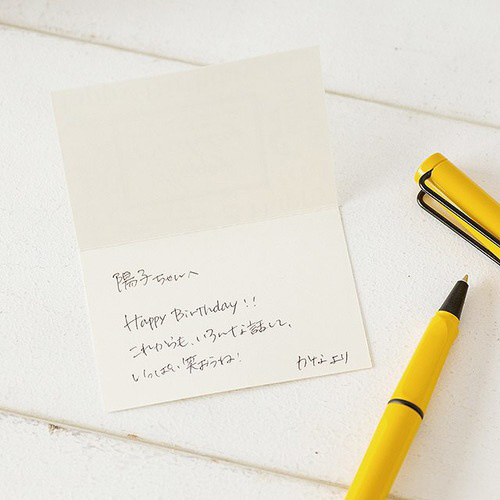 陽子ちゃんへ
Happy Birthday!!
これからも、いろんな話して、
いっぱい笑おうね!
かなより